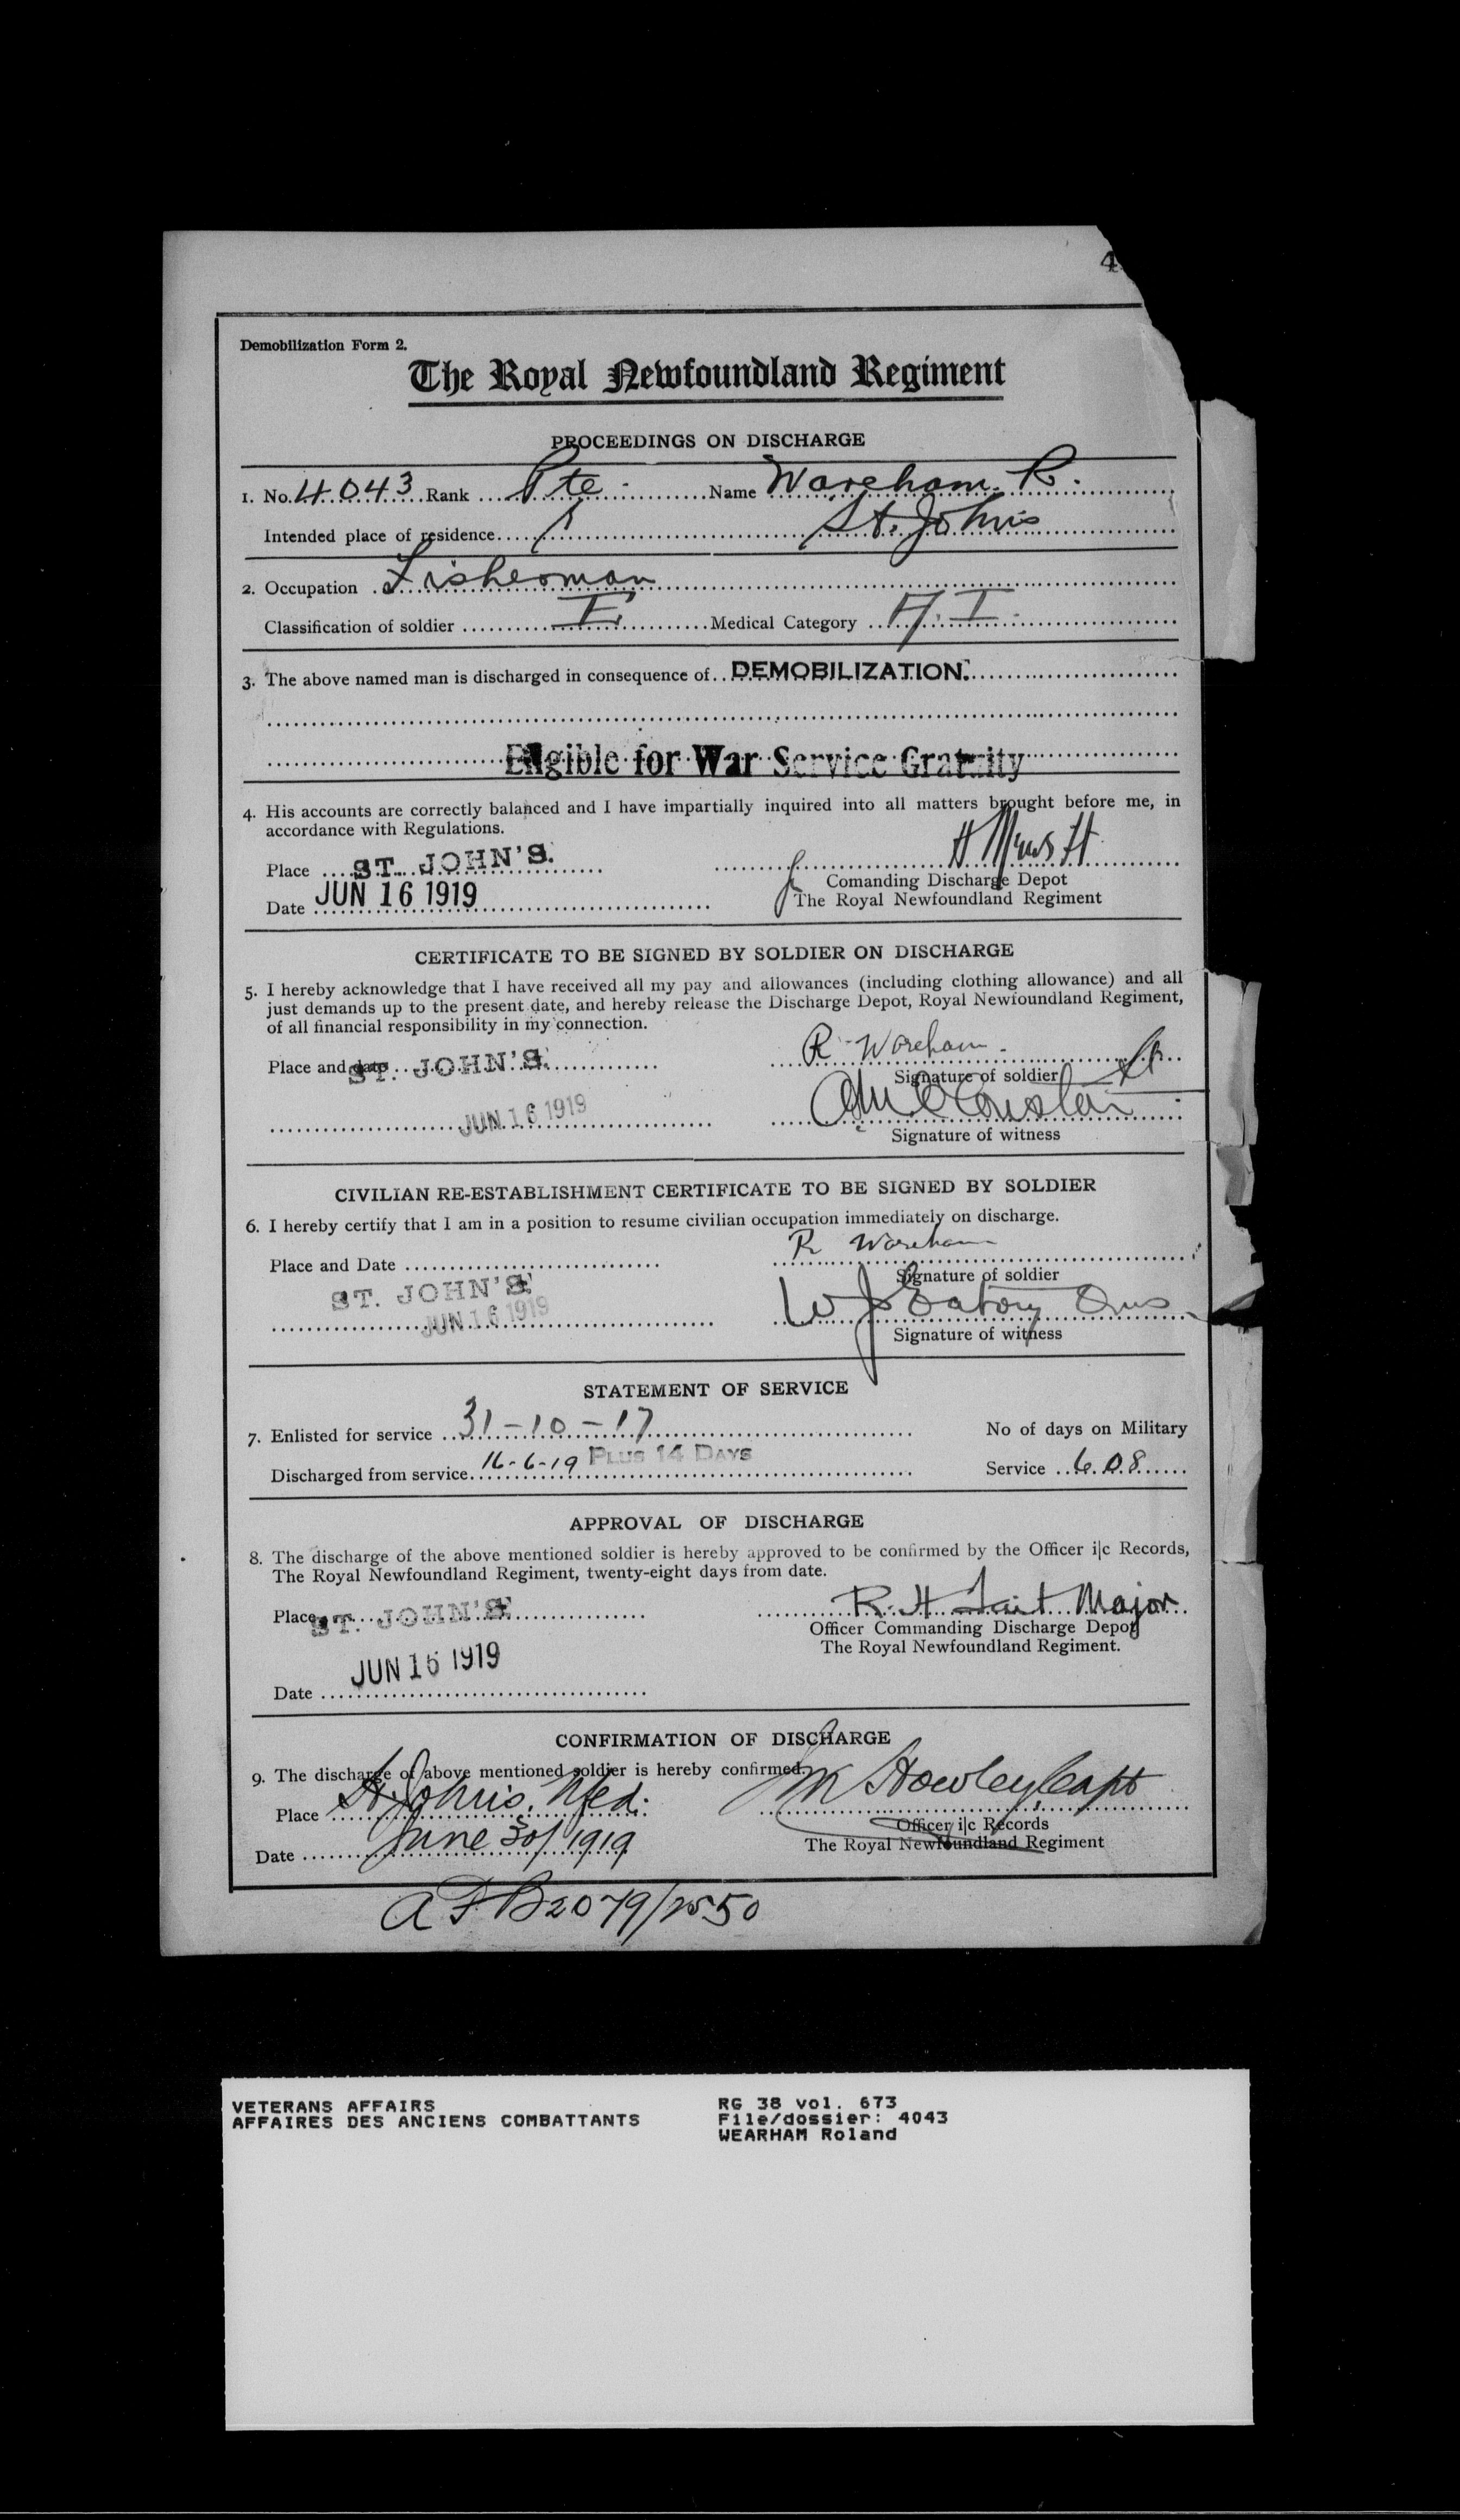 4
Demobilization Form 2.
The Royal Newfoundland Regiment
PROCEEDINGS ON DISCHARGE
1. No. 4043 Rank Pte. Name Wareham R.
Intended place of residence St. John's
2. Occupation Fisherman
Classification of soldier I Medical Category A.I.
3. The above named man is discharged in consequence of DEMOBILIZATION.
Eligible for War Service Gratuity
4. His accounts are correctly balanced and I have impartially inquired into all matters brought before me, in
accordance with Regulations.
Place ST. JOHN'S.
Comanding Discharge Depot
Date JUN 16 1919 The Royal Newfoundland Regiment
CERTIFICATE TO BE SIGNED BY SOLDIER ON DISCHARGE
5. I hereby acknowledge that I have received all my pay and allowances (including clothing allowance) and all
just demands up to the present date, and hereby release the Discharge Depot, Royal Newfoundland Regiment,
of all financial responsibility in my connection.
Place and date ST. JOHN'S. R Wareham
Signature of soldier
JUN 16 1919
Signature of witness
CIVILIAN RE-ESTABLISHMENT CERTIFICATE TO BE SIGNED BY SOLDIER
6. I hereby certify that I am in a position to resume civilian occupation immediately on discharge.
Place and Date R Wareham
Signature of soldier
ST. JOHN'S.
JUN 16 1919
Signature of witness
STATEMENT OF SERVICE
7. Enlisted for service 31-10-17 No of days on Military
Discharged from service 16-6-19 PLUS 14 DAYS Service 608
APPROVAL OF DISCHARGE
8. The discharge of the above mentioned soldier is hereby approved to be confirmed by the Officer i|c Records,
The Royal Newfoundland Regiment, twenty-eight days from date.
Place ST. JOHN'S. R. H Tait Major
Officer Commanding Discharge Depot
The Royal Newfoundland Regiment.
JUN 16 1919
Date
CONFIRMATION OF DISCHARGE
9. The discharge of above mentioned soldier is hereby confirmed.
Place St Johns, Nfld. Howley, Capt
Officer i|c Records
Date June 30/1919 The Royal Newfoundland Regiment
AFB2079/2550
VETERANS AFFAIRS RG 38 vol. 673
AFFAIRES DES ANCIENS COMBATTANTS File/dossier: 4043
WEARHAM Roland